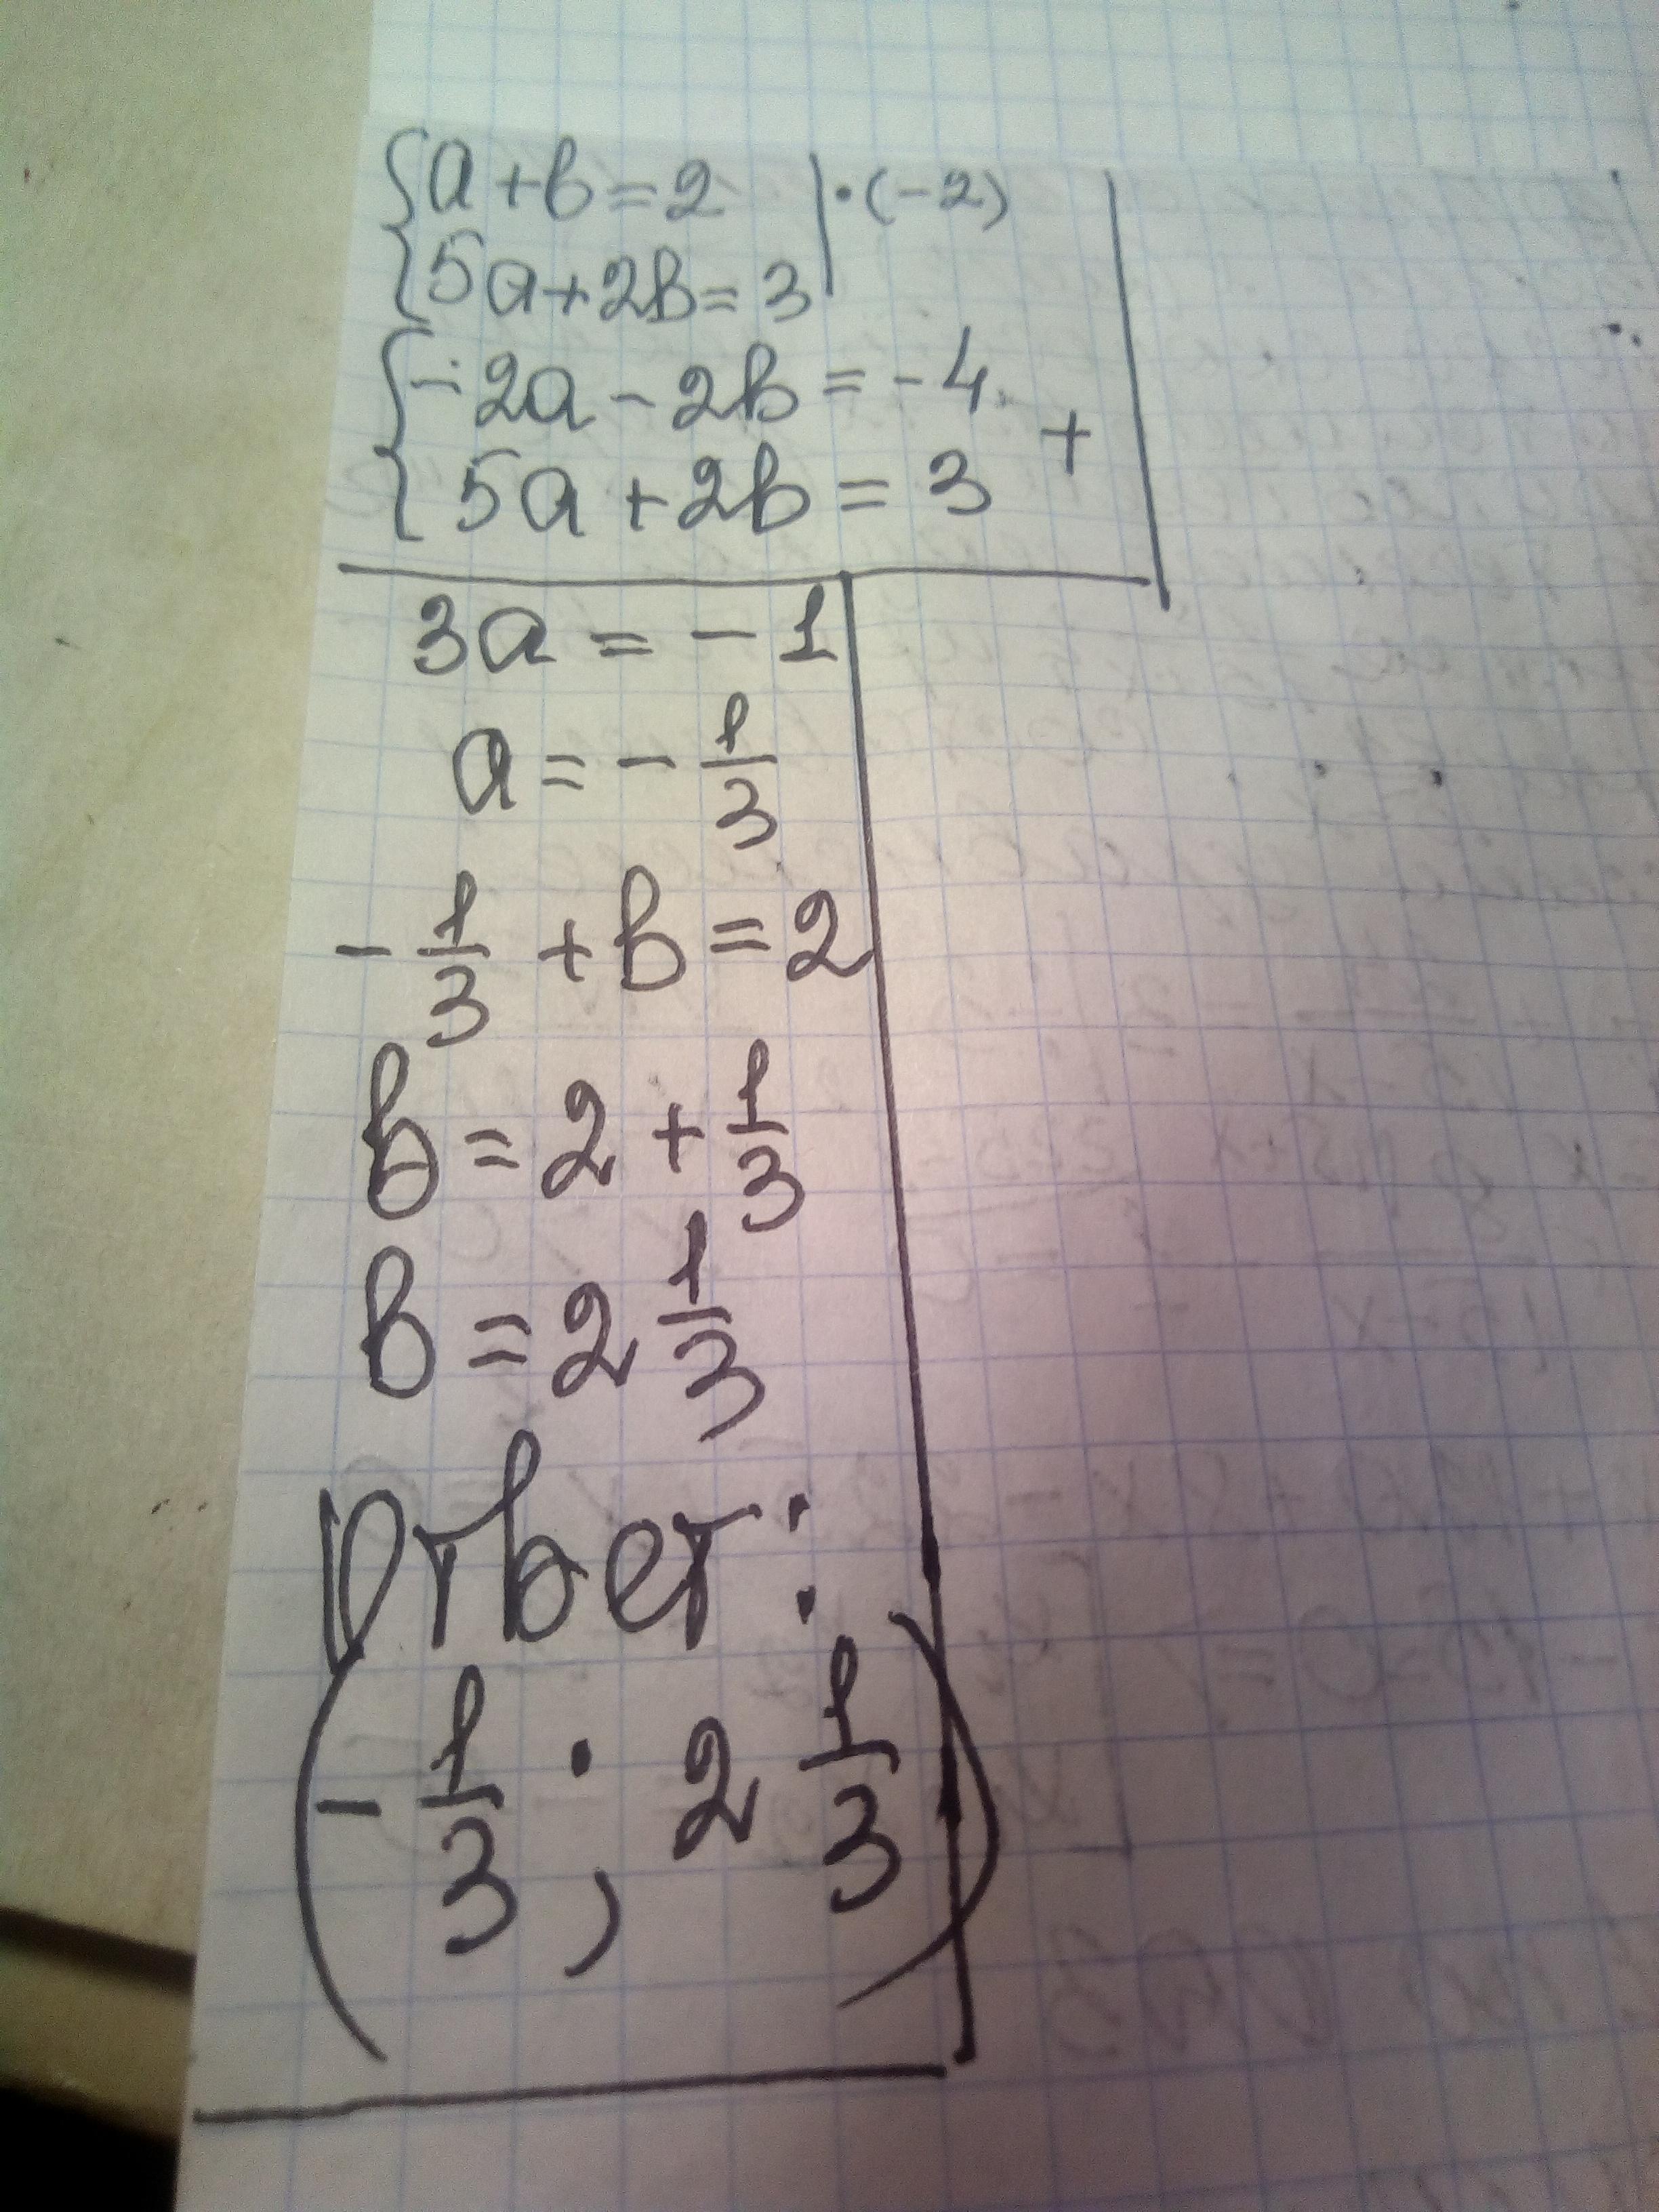 {a + в = 2 | · (-2)
{5a + 2в = 3
{-2a - 2в = -4
{5a + 2в = 3 +
3a = - 1
a = - 1/3
- 1/3 + в = 2
в = 2 + 1/3
в = 2 1/3
Ответ:
(- 1/3 ; 2 1/3)